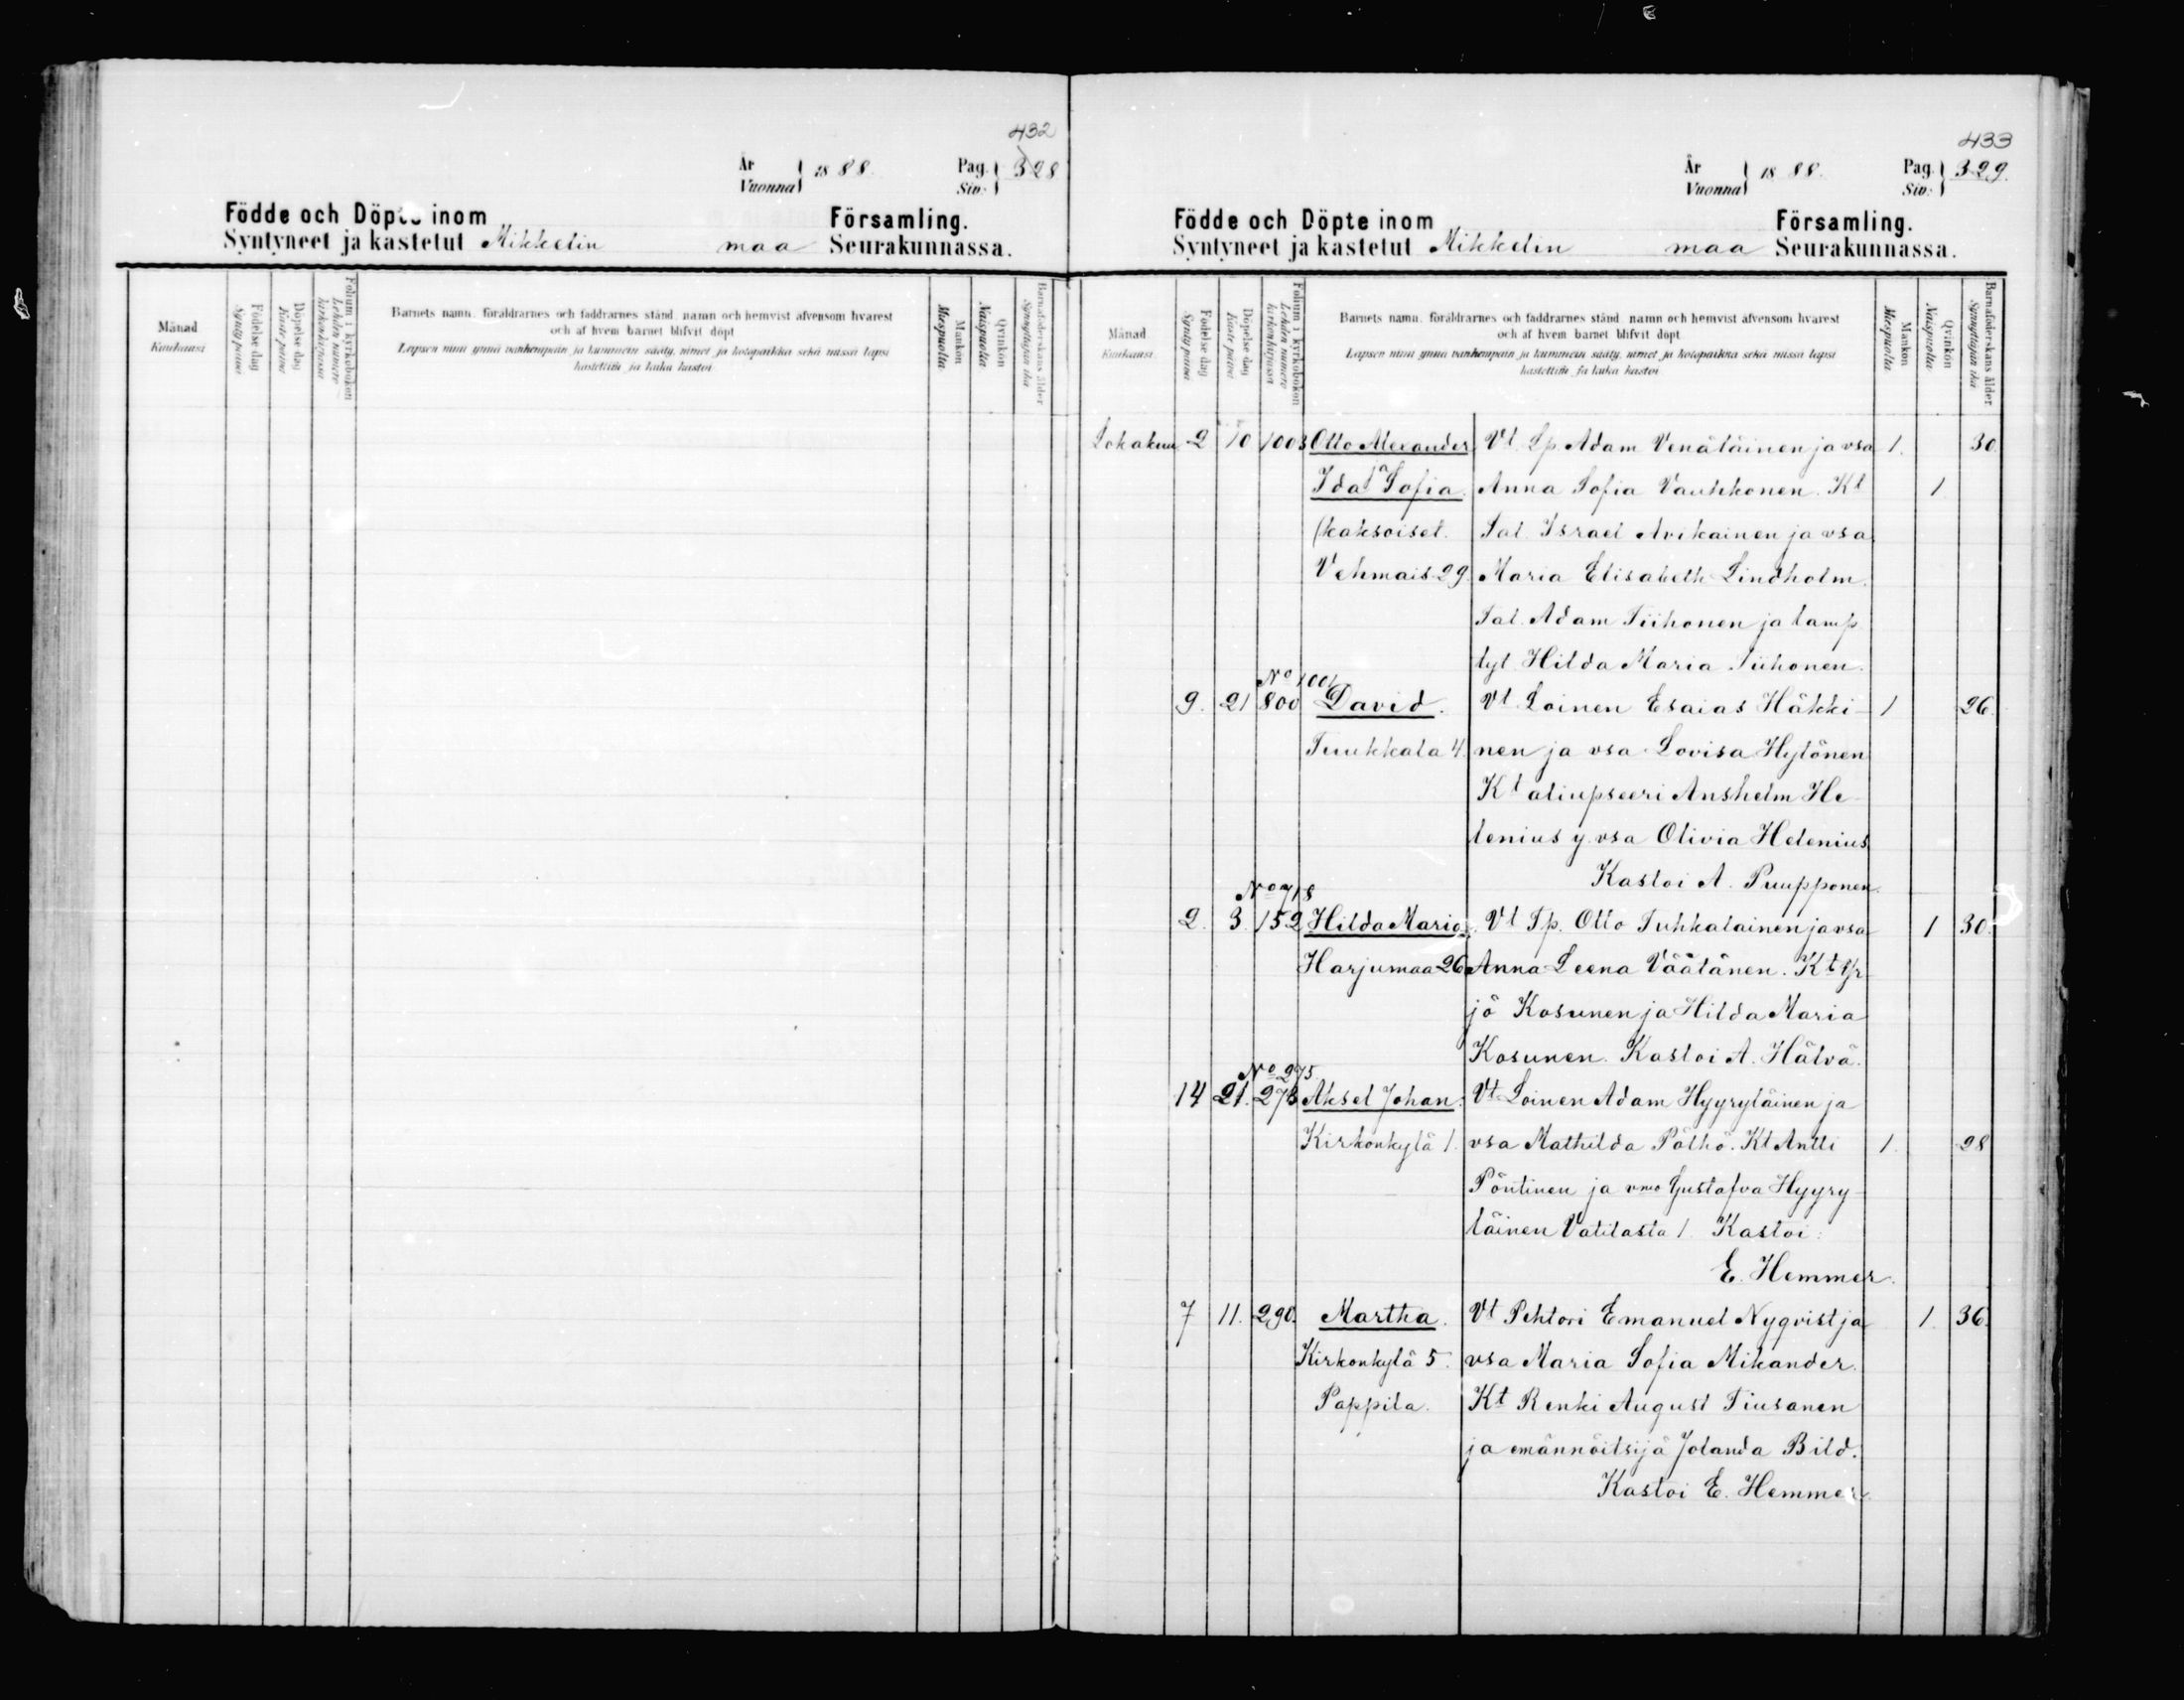 432
År Vuonna 1888. Pag. Siv: 328
Födde och Döpte inom Församling.
Syntyneet ja kastetut Mikkelin maa Seurakunnassa.
Månad Kuukausi
Födelse dag Synty päivä
Döpelse dag Kaste päivä
Folium i kyrkoboken Lehden numero kirkonkirjassa
Barnets namn, föräldrarnes och faddrarnes stånd, namn och hemvist äfvensom hvarest
och af hvem barnet blifvit döpt
Lapsen nimi ynnä vanhempain ja kummein sääty, nimet ja kotopaikka sekä missä lapsi
kastettiin ja kuka kastoi
Mankön Miespuolta
Qvinkön Naispuolta
Barnaföderskans ålder Synnyttäjän ikä
433
År Vuonna 1888. Pag. Siv: 329.
Födde och Döpte inom Församling.
Syntyneet ja kastetut Mikkelin maa Seurakunnassa.
Månad Kuukausi
Födelse dag Synty päivä
Döpelse dag Kaste päivä
Folium i kyrkoboken Lehden numero kirkonkirjassa
Barnets namn, föräldrarnes och faddrarnes stånd, namn och hemvist äfvensom hvarest
och af hvem barnet blifvit döpt
Lapsen nimi ynnä vanhempain ja kummein sääty, nimet ja kotopaikka sekä missä lapsi
kastettiin ja kuka kastoi
Mankön Miespuolta
Qvinkön Naispuolta
Barnaföderskans ålder Synnyttäjän ikä
Lokakuu 2 10 1003 Otto Alexander Vt Lp. Adam Venäläinen ja vsa 1. 30.
Ida Sofia. Anna Sofia Vauhkonen. Kt 1
(kaksoiset. Tal. Israel Avikainen ja vsa
Vehmais. 29. Maria Elisabeth Lindholm.
Tal. Adam Tiihonen ja lamp.
tyt. Hilda Maria Tiihonen.
No 1001
9. 21 800 David. Vt Loinen Esaias Häkki- 1 26.
Tuukkala 4. nen ja vsa Lovisa Hytönen
Kt aliupseeri Anshelm He-
lenius y. vsa Olivia Helenius
Kastoi A. Puupponen.
No 718
2. 3. 152 Hilda Maria. Vt Tp. Otto Tuhkalainen ja vsa 1 30.
Harjumaa 26 Anna Leena Väätänen. Kt Yr-
jö Kosunen ja Hilda Maria
Kosunen. Kastoi A. Hälvä.
No 275.
14 21. 273 Aksel Johan. Vt Loinen Adam Hyyryläinen ja
Kirkonkylä 1. vsa Mathilda Pöthö. Kt Antti 1. 28
Pöntinen ja vmo Gustafva Hyyry-
läinen Vatilasta 1. Kastoi:
E. Hemmer.
7 11. 290. Martha. Vt Pehtori Emanuel Nyqvist ja 1. 36.
Kirkonkylä 5. vsa Maria Sofia Mikander.
Pappila. Kt Renki August Tiusanen
ja emännöitsijä Jolanda Bild.
Kastoi E. Hemmer.